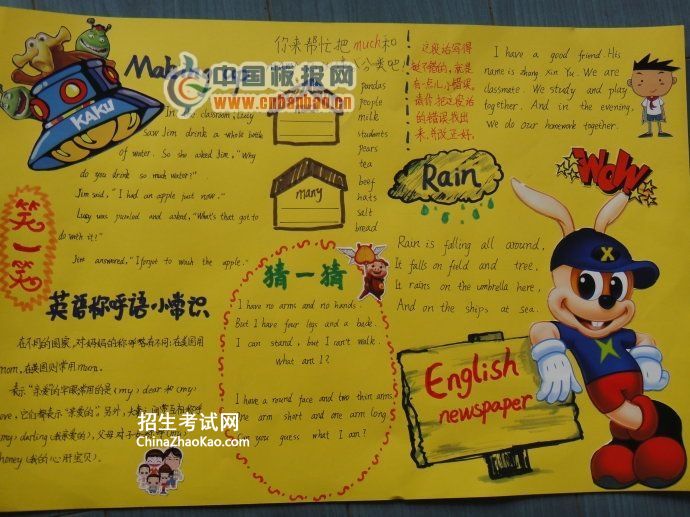 KAKU
In the classroom, Lucy
saw Jim drink a whole bottle
of water. So she asked Jim, "Why
do you drink so much water?"
Jim said, "I had an apple just now."
Lucy was puzzled and asked, "What's that got to
do with it?"
Jim answered, "I forgot to wash the apple."
笑一笑
中国板报网
www.cnbanbao.cn
你来帮忙把much和
分类吧!
many
pandas
people
milk
students
pears
tea
beef
hats
salt
bread
这段话写得
挺不错的,就是
有一点儿小错误,
请你把这段话
的错误找出
来,并改正好。
I have a good friend. His
name is Zhang Xin Yu. We are
classmate. We study and play
together. And in the evening,
We do our homework together.
WOW
Rain
Rain is falling all around,
It falls on field and tree,
It rains on the umbrella here,
And on the ships at sea.
猜一猜
I have no arms and no hands.
But I have four legs and a back.
I can stand, but I can't walk.
what am I?
I have a round face and two thin arms.
One arm short and one arm long.
Can you guess what I am?
英语称呼语小常识
在不同的国家,对妈妈的称呼略有不同:在英国用
mum,在美国则常用mom.
表示"亲爱的"字眼常用的是(my) dear和(my)
love,它们都表示"亲爱的"。另外,大
(my) darling(我亲爱的),父母对子
honey(我的心肝宝贝).
招生考试网
ChinaZhaoKao.com
English
newspaper
X